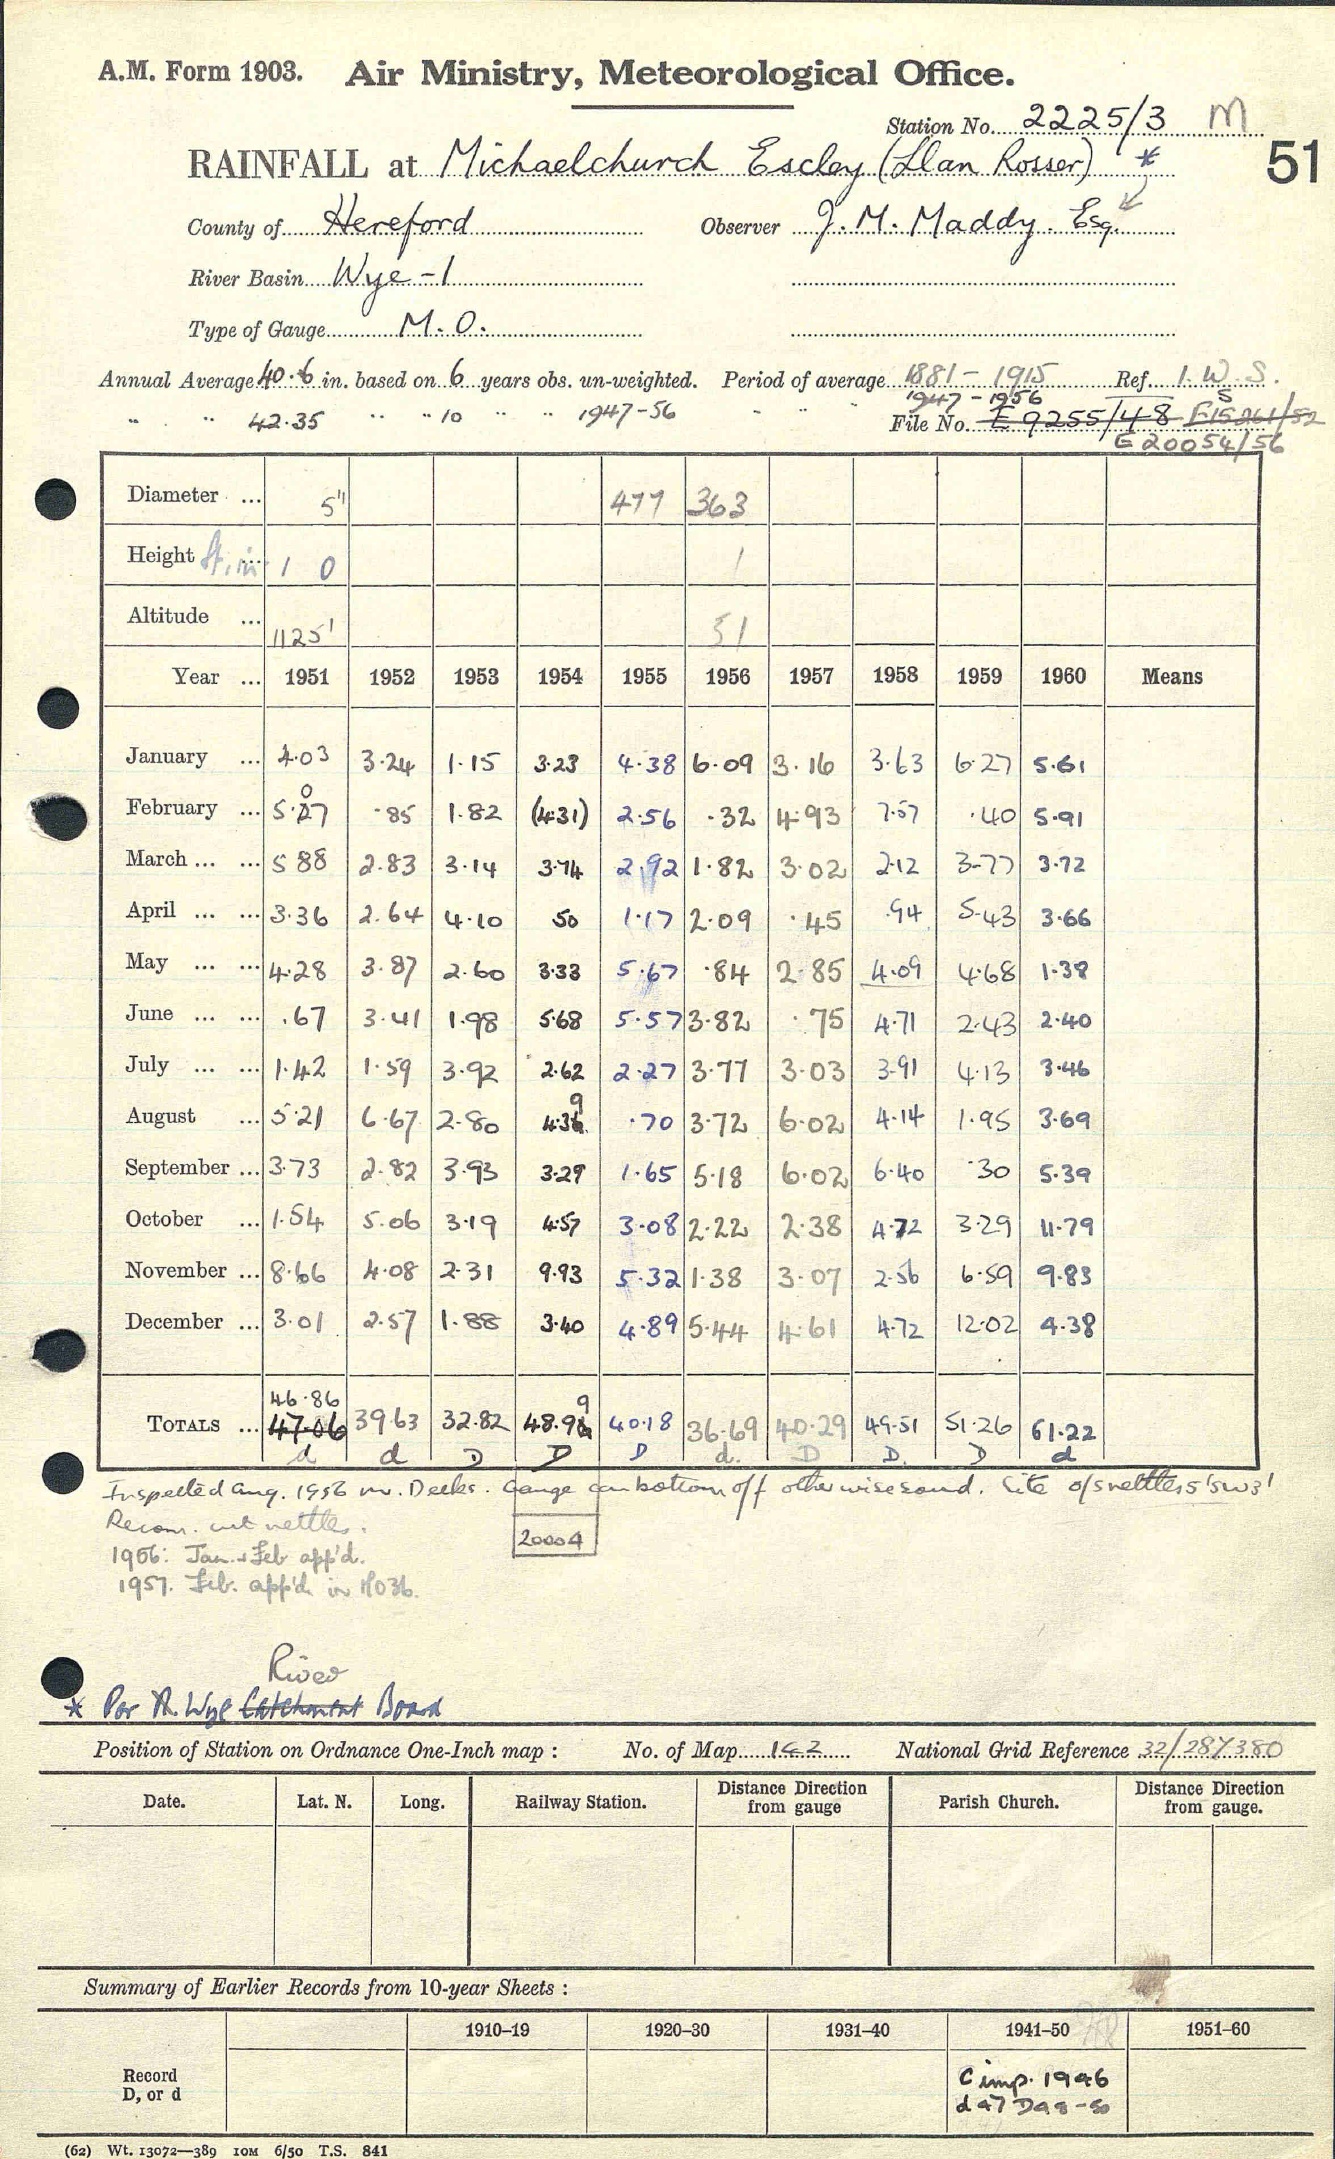 A.M. Form 1903. Air Ministry, Meteorological Office.
Station No. 2225/3 M
RAINFALL at Michaelchurch Escley (Llan Rosser) *
51
County of Hereford Observer J. M. Maddy. Esq.
River Basin Wye - 1
Type of Gauge M. O.
Annual Average 40.6 in. based on 6 years obs. un-weighted. Period of average 1881 - 1915 Ref. I. W. S.
1947 - 1956
" " 42.35 " " 10 " " 1947-56 " " " File No. E 9255/48 F15261/52
S
G 20054/56
Diameter ... 5" 477 363
Height ft. in. 1 0 1
Altitude ... 1125' 51
Year ... 1951 1952 1953 1954 1955 1956 1957 1958 1959 1960 Means
January ... 4.03 3.24 1.15 3.23 4.38 6.09 3.16 3.63 6.27 5.61
0
February ... 5.27 .85 1.82 (4.31) 2.56 .32 4.93 7.57 .40 5.91
March ... ... 5 88 2.83 3.14 3.74 2.92 1.82 3.02 2.12 3.77 3.72
April ... ... 3.36 2.64 4.10 50 1.17 2.09 .45 .94 5.43 3.66
May ... ... 4.28 3.87 2.60 3.33 5.67 .84 2.85 4.09 4.68 1.38
June ... ... .67 3.41 1.98 5.68 5.57 3.82 .75 4.71 2.43 2.40
July ... ... 1.42 1.59 3.92 2.62 2.27 3.77 3.03 3.91 4.13 3.46
9
August ... 5.21 6.67 2.80 4.36 .70 3.72 6.02 4.14 1.95 3.69
September ... 3.73 2.82 3.93 3.29 1.65 5.18 6.02 6.40 .30 5.39
October ... 1.54 5.06 3.19 4.57 3.08 2.22 2.38 4.72 3.29 11.79
November ... 8.66 4.08 2.31 9.93 5.32 1.38 3.07 2.56 6.59 9.83
December ... 3.01 2.57 1.88 3.40 4.89 5.44 4.61 4.72 12.02 4.38
46.86 9
TOTALS ... 47.06 39.63 32.82 48.96 40.18 36.69 40.29 49.51 51.26 61.22
d d D D D d. D D. D d
Inspected Aug. 1956 Mr. Deeks. Gauge can bottom off otherwise sound. Site o/s nettles 5' SW 3'
Recom. cut nettles.
20004
1956: Jan. & Feb app'd.
1957. Feb. app'd. in MO3b.
River
* Per R. Wye Catchment Board
Position of Station on Ordnance One-Inch map : No. of Map 142 National Grid Reference 32/287380
Date. Lat. N. Long. Railway Station. Distance Direction from gauge Parish Church. Distance Direction from gauge.
Summary of Earlier Records from 10-year Sheets :
1910–19 1920–30 1931–40 1941–50 1951–60
Record D, or d
C imp. 1946
d 47 D48-50
(62) Wt. 13072—389 10M 6/50 T.S. 841